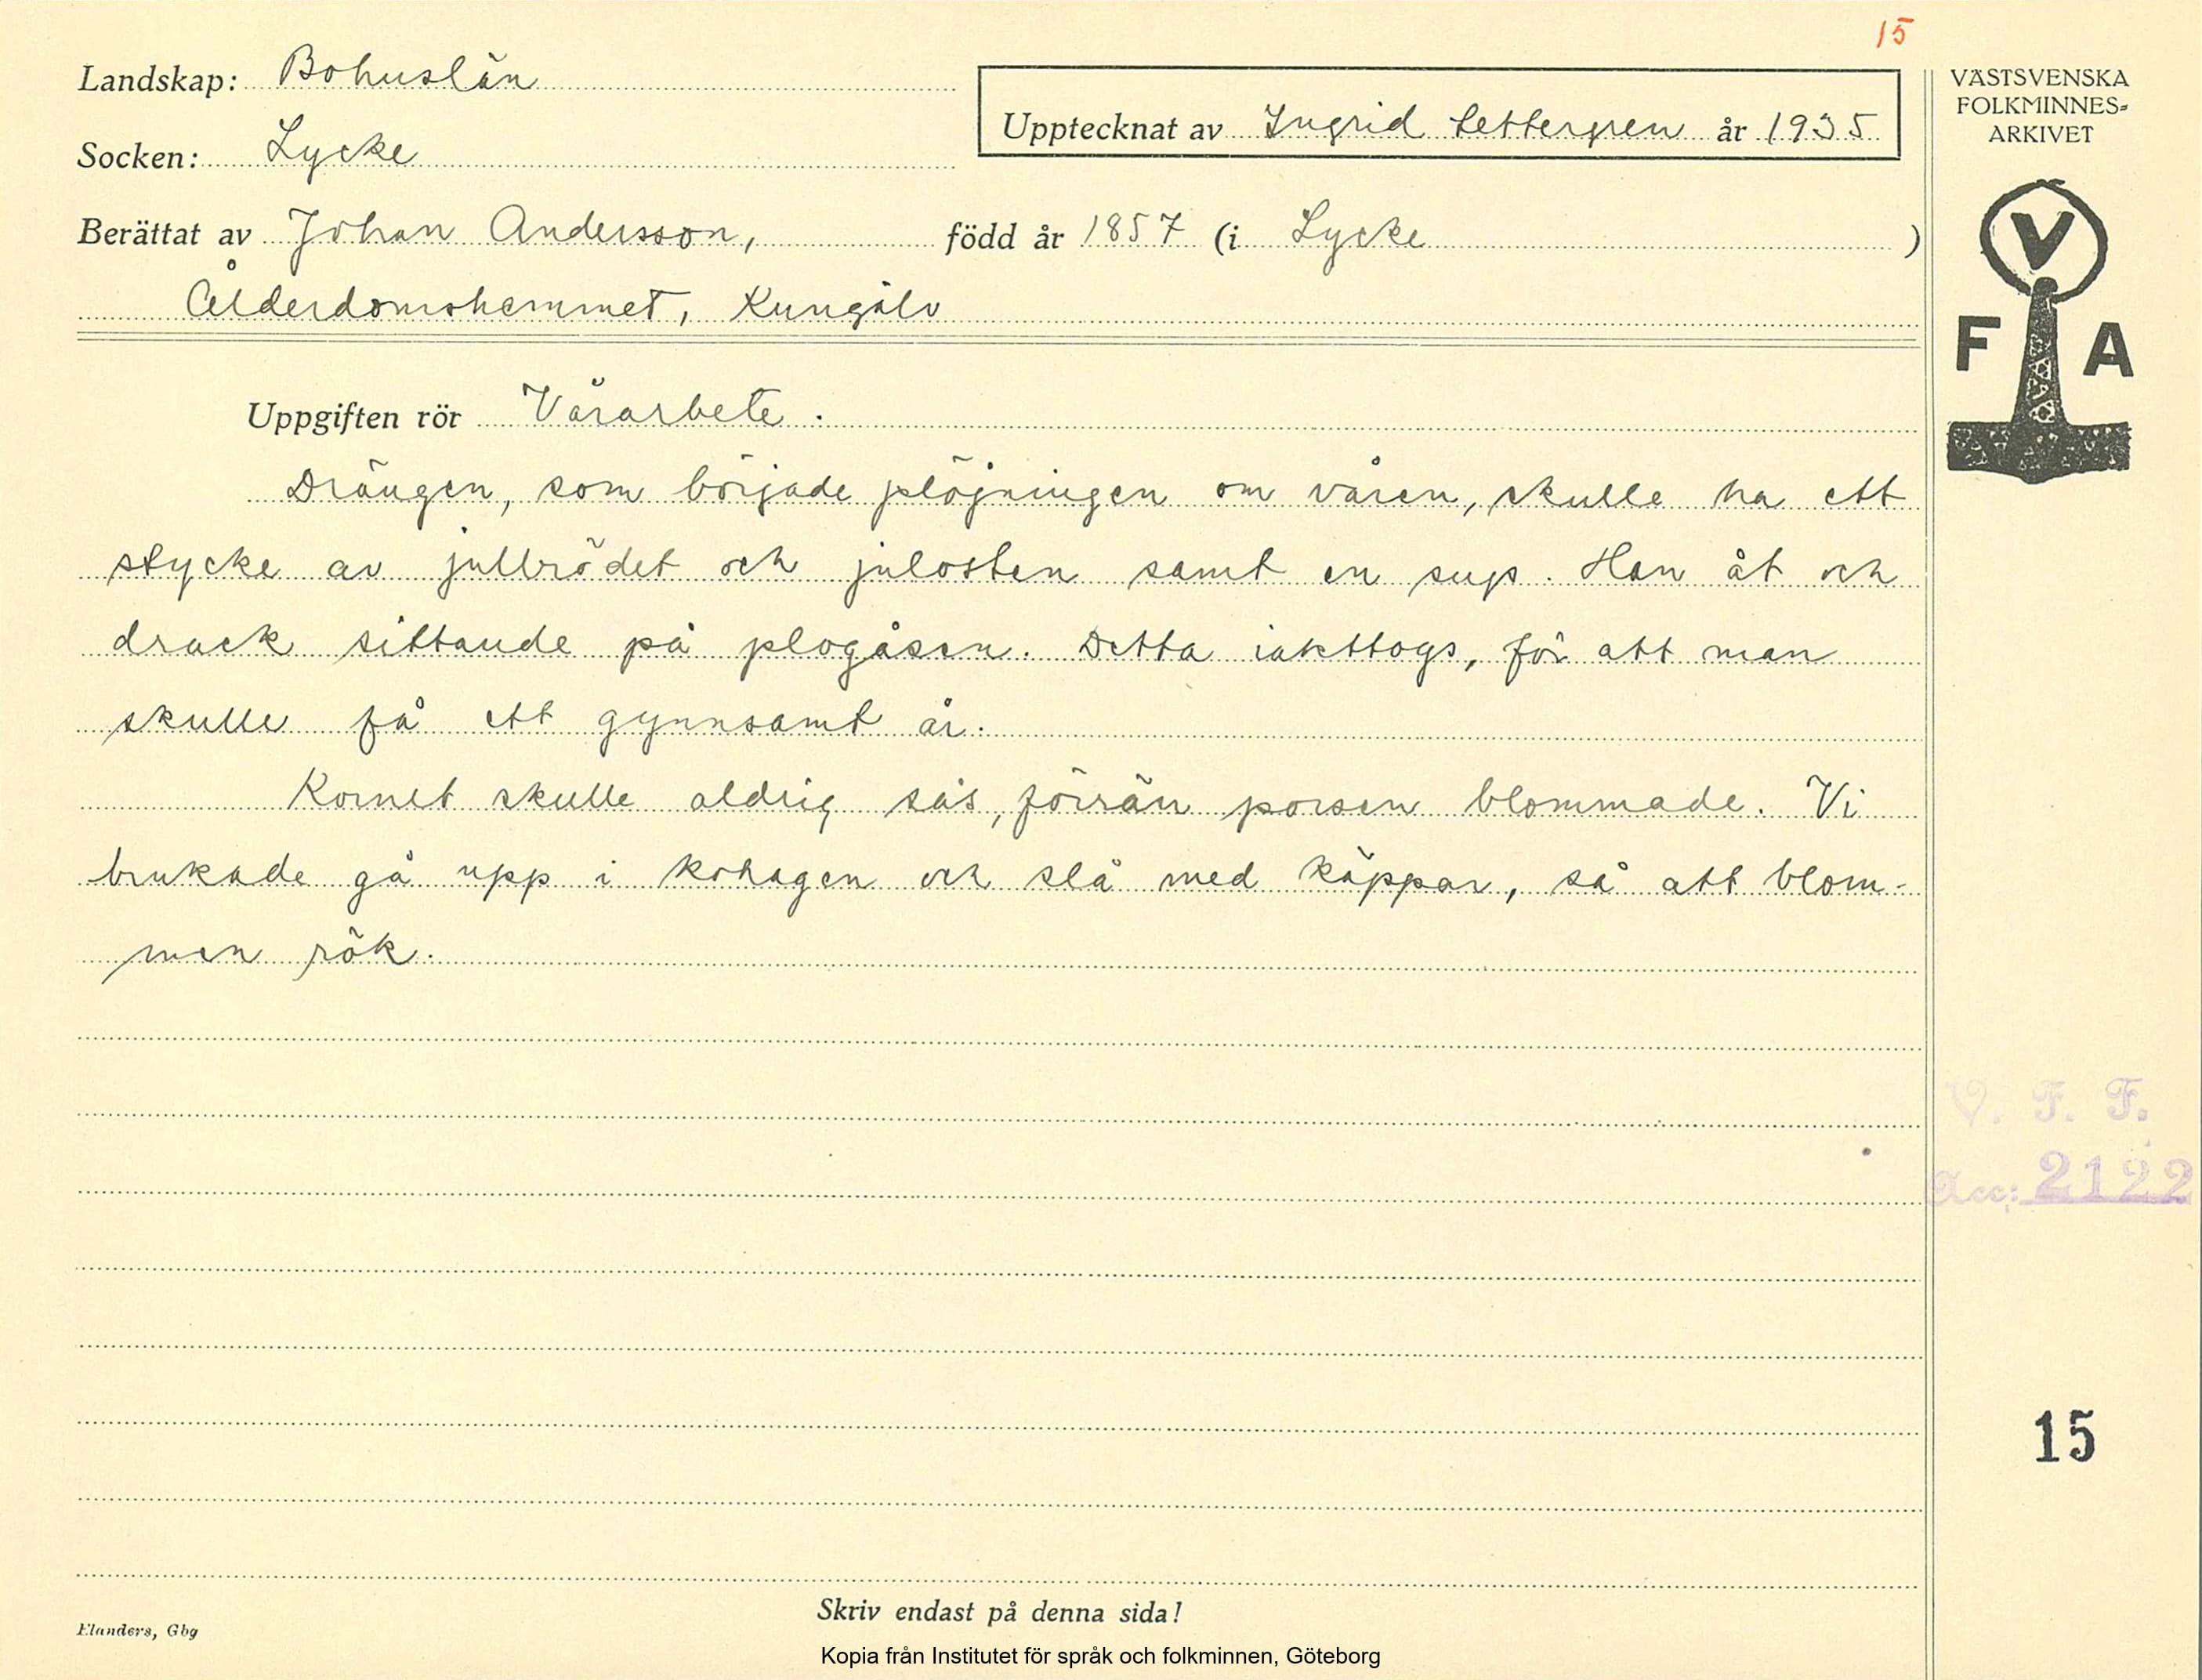 15
Landskap: Bohuslän
Socken: Lycke
Upptecknat av Ingrid Settergren år 1935
Berättat av Johan Andersson, född år 1857 (i Lycke )
Ålderdomshemmet, Kungälv
VÄSTSVENSKA
FOLKMINNES-
ARKIVET
V
F A
Uppgiften rör Vårarbete.
Drängen, som började plöjningen om våren, skulle ha ett
stycke av julbrödet och julosten samt en sup. Han åt och
drack sittande på plogåsen. Detta iakttogs, för att man
skulle få ett gynnsamt år.
Kornet skulle aldrig sås, förrän porsen blommade. Vi
brukade gå upp i kohagen och slå med käppar, så att blom-
men rök.
V. F. F.
Acc: 2122
15
Skriv endast på denna sida!
Elanders, Gbg
Kopia från Institutet för språk och folkminnen, Göteborg